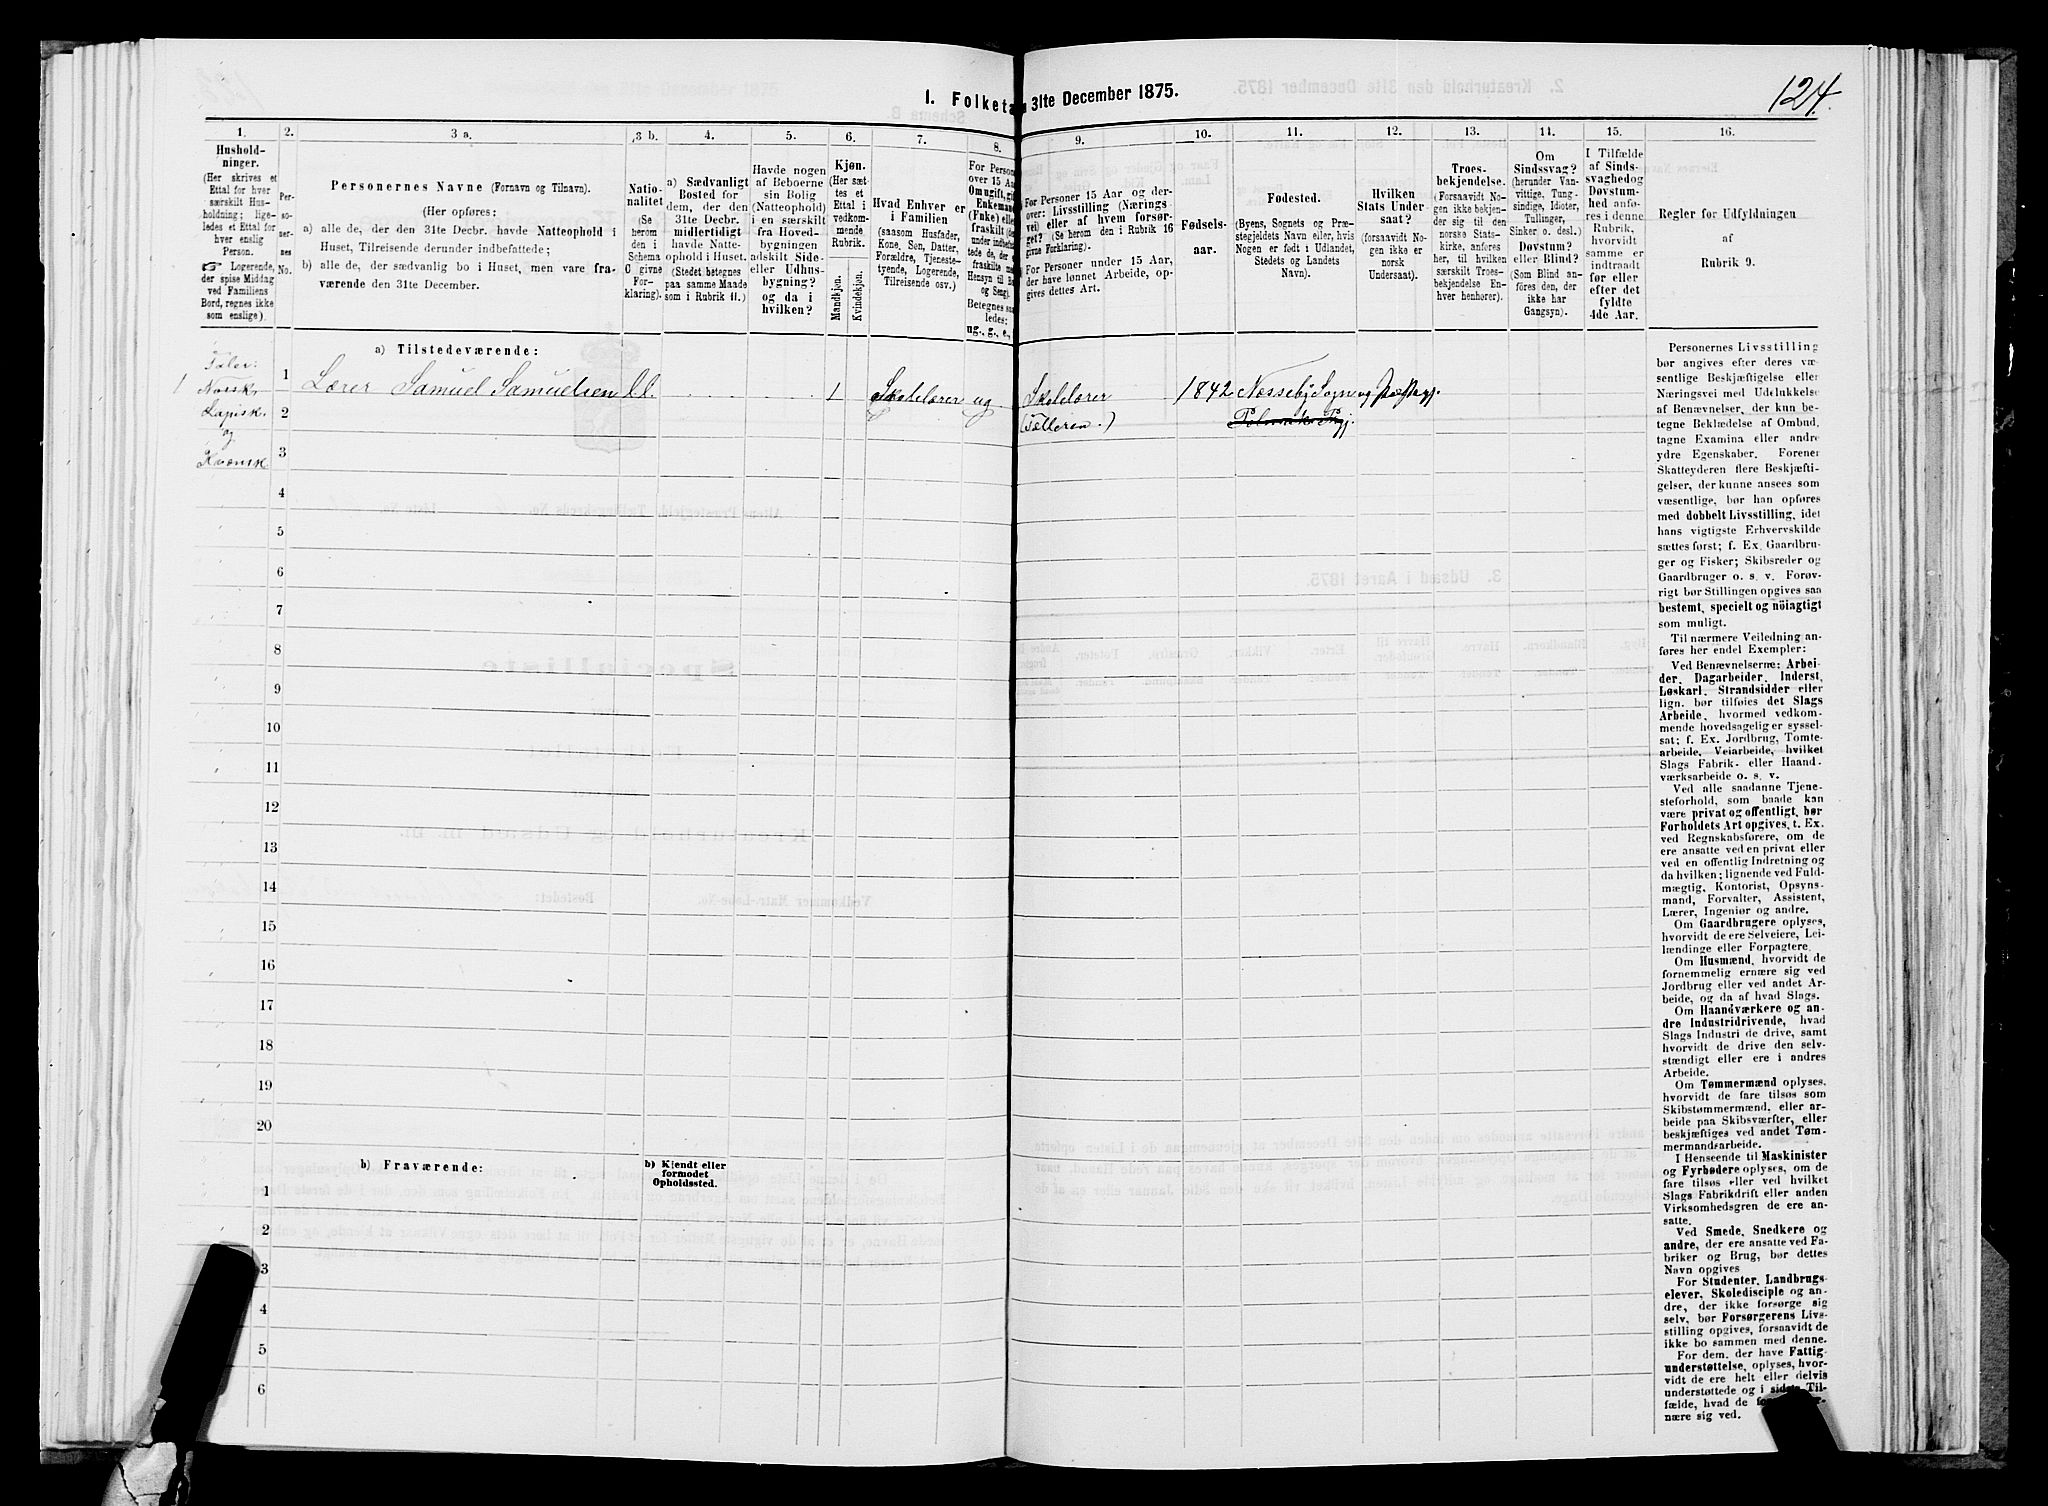 124.
I. Folketa 31te December 1875.
1.
Hushold-
ninger.
(Her skrives et
Ettal for hver
særskilt Hus-
holdning; lige-
ledes et Ettal for
hver enslig
Person.
☞ Logerende,
der spise Middag
ved Familiens
Bord, regnes ikke
som enslige).
2.
Per-
so-
ner-
nes
No.
3 a.
Personernes Navne (Fornavn og Tilnavn).
(Her opføres:
a) alle de, der den 31te Decbr. havde Natteophold i
Huset, Tilreisende derunder indbefattede;
b) alle de, der sædvanlig bo i Huset, men vare fra-
værende den 31te December.
3 b.
Natio-
nalitet
(Se
herom
den i
Schema
C givne
For-
klaring).
4.
a) Sædvanligt
Bosted for
dem, der den
31te Decbr.
midlertidigt
havde Natte-
ophold i Huset.
(Stedet betegnes
paa samme Maade
som i Rubrik 11.)
5.
Havde nogen
af Beboerne
sin Bolig
(Natteophold)
i en særskilt
fra Hoved-
bygningen
adskilt Side-
eller Udhus-
bygning?
og da i
hvilken?
6.
Kjøn.
(Her sæt-
tes et
Ettal i
vedkom-
mende
Rubrik.
Mandkjøn.
Kvindekjøn.
7.
Hvad Enhver er
i Familien
(saasom Husfader,
Kone, Søn, Datter,
Forældre, Tjeneste-
tyende, Logerende,
Tilreisende osv.)
8.
For Person
over 15 Aa
Omugift, gi
Enkeman
(Fnke) elle
fraskilt (
under indbe
tede de, d
fraskilte m
Hensyn til Bo
og Seng).
Betegnes saa
ledes:
ug., g., e.,
9.
For Personer 15 Aar og der-
over: Livsstilling (Nærings-
vei) eller af hvem forsør-
get? (Se herom den i Rubrik 16
givne Forklaring).
For Personer under 15 Aar,
der have lønnet Arbeide, op-
gives dettes Art.
10.
Fødsels-
aar.
11.
Fødested.
(Byens, Sognets og Præ-
stegjeldets Navn eller, hvis
Nogen er født i Udlandet,
Stedets og Landets
Navn).
12.
Hvilken
Stats Under-
saat?
(forsaavidt No-
gen ikke er
norsk
Undersaat).
13.
Troes-
bekjendelse.
(Forsaavidt No-
gen ikke bekjen-
der sig til den
norske Stats-
kirke, anføres
her, til hvilken
særskilt Troes-
bekjendelse En-
hver henhører).
14.
Om
Sindssvag?
(herunder Van-
vittige, Tung-
sindige, Idioter,
Tullinger,
Sinker o. desl.)
Døvstum?
eller Blind?
(Som Blind an-
føres den, der
ikke har
Gangsyn).
15.
I Tilfælde
af Sinds-
svaghed og
Døvstum-
hed anfø-
res i denne
Rubrik,
hvorvidt
samme er
indtraadt
før eller
efter det
fyldte
4de Aar.
16.
Regler for Udfyldningen
af
Rubrik 9.
a) Tilstedeværende:
Taler:
1 Norsk, 1 Lærer Samuel Samuelsen l.l. 1 Skolelærer ug Skolelærer 1842 Næsseby Sogn og Præstegj.
Lapisk 2 (Tælleren.) Polmak Pgj.
og
Kvænsk 3
4
5
6
7
8
9
10
11
12
13
14
15
16
17
18
19
20
b) Fraværende:
b) Kjendt eller
formodet
Opholdssted.
1
2
3
4
5
6
Personernes Livsstilling
bør angives efter deres væ-
sentlige Beskjæftigelse eller
Næringsvei med Udelukkelse
af Benævnelser, der kun be-
tegne Beklædelse af Ombud,
tagne Examina eller andre
ydre Egenskaber. Forener
Skatteyderen flere Beskjæfti-
gelser, der kunne ansees som
væsentlige, bør han opføres
med dobbelt Livsstilling, idet
hans vigtigste Erhvervskilde
sættes først; f. Ex. Gaardbru-
ger og Fisker; Skibsreder og
Gaardbruger o. s. v. Forøv-
rigt bør Stillingen opgives saa
bestemt, specielt og nöiagtigt
som muligt.
Til nærmere Veiledning an-
føres her endel Exempler:
Ved Benævnelserne: Arbei-
der, Dagarbeider, Inderst,
Løskarl, Strandsidder eller
lign. bør tilføies det Slags
Arbeide, hvormed vedkom-
mende hovedsagelig er syssel-
sat; f. Ex. Jordbrug, Tomte-
arbeide, Veiarbeide, hvilket
Slags Fabrik- eller Haand-
værksarbeide o. s. v.
Ved alle saadanne Tjene-
steforhold, som baade kan
være privat og offentligt, bør
Forholdets Art opgives, t. Ex.
ved Regnskabsførere, om de
ere ansatte ved en privat eller
ved en offentlig Indretning og
da hvilken; lignende ved Fuld-
mægtig, Kontorist, Opsyns-
mand, Forvalter, Assistent,
Lærer, Ingeniør og andre.
Om Gaardbrugere oplyses,
hvorvidt de ere Selveiere, Lei-
lændinge eller Forpagtere.
Om Husmænd, hvorvidt de
fornemmelig ernære sig ved
Jordbrug eller ved andet Ar-
beide, og da af hvad Slags.
Om Haandværkere og an-
dre Industridrivende, hvad
Slags Industri de drive, samt
hvorvidt de drive den selv-
stændigt eller ere i andres
Arbeide.
Om Tømmermænd oplyses,
hvorvidt de fare tilsøs som
Skibstømmermænd, eller ar-
beide paa Skibsværfter, eller
beskjæftiges ved andet Tøm-
mermandsarbeide.
I Henseende til Maskinister
og Fyrbødere oplyses, om de
fare tilsøs eller ved hvilket
Slags Fabrikdrift eller anden
Virksomhedsgren de ere an-
satte.
Ved Smede, Snedkere og
andre, der ere ansatte ved Fa-
briker og Brug, bør dettes
Navn opgives
For Studenter, Landbrugs-
elever, Skoledisciple og an-
dre, der ikke forsørge sig
selv, bør Forsørgerens Livs-
stilling opgives, forsaavidt de
ikke bo sammen med denne.
For dem, der have Fattig-
understøttelse, oplyses, hvor-
vidt de ere helt eller delvis
understøttede og i sidste Til-
fælde, hvad de
nære sig ved.